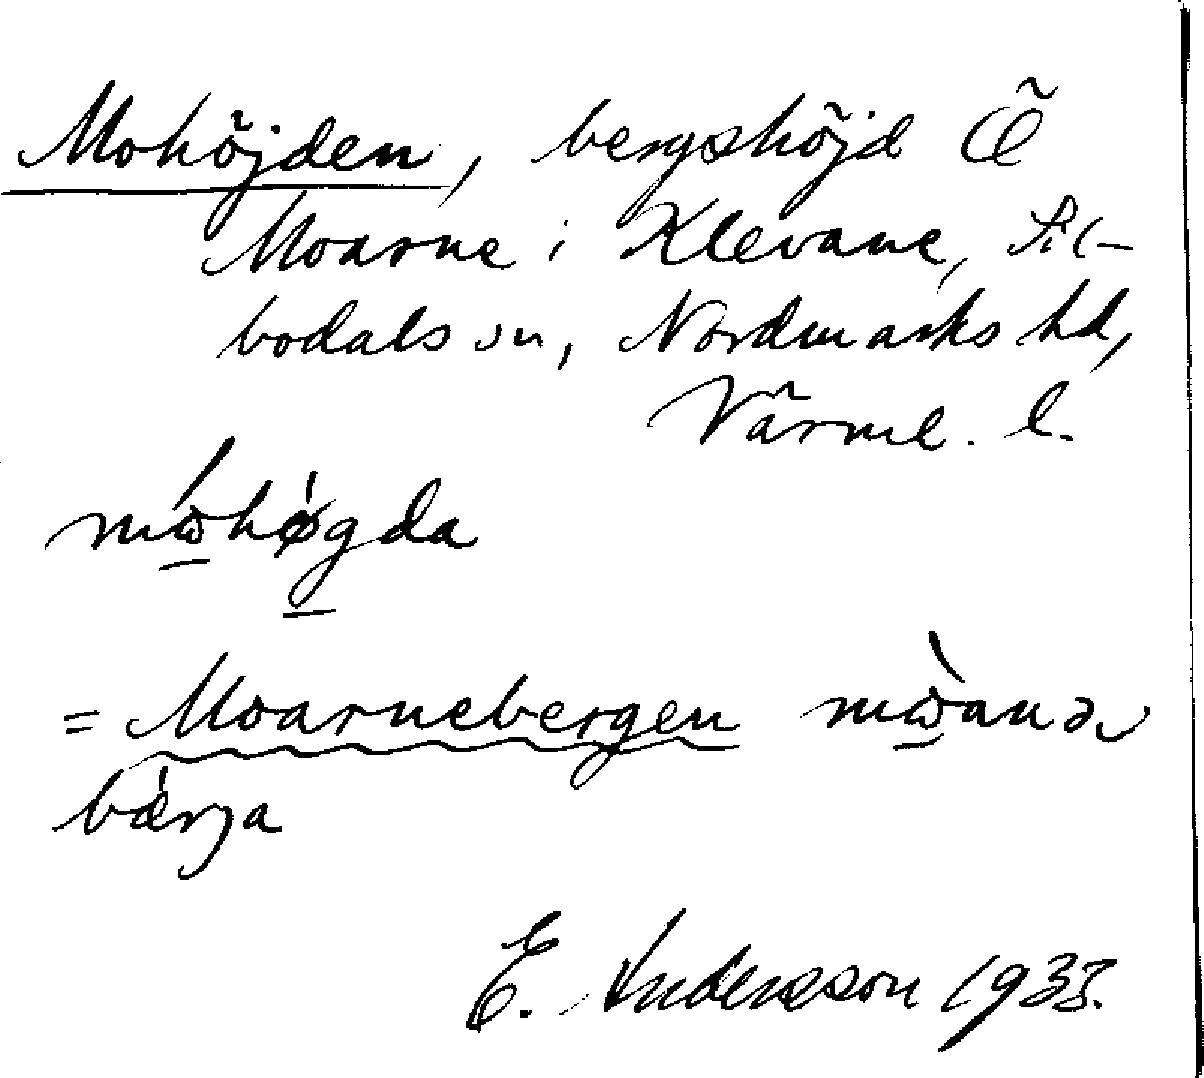 Mohöjden, bergshöjd Ö
Moarne i Klevane, Sil-
bodals sn, Nordmarks hd,
Värml. l.
mὼhøgda
= Moarnebergen mὼanər
bærja
E. Andersson 1933.